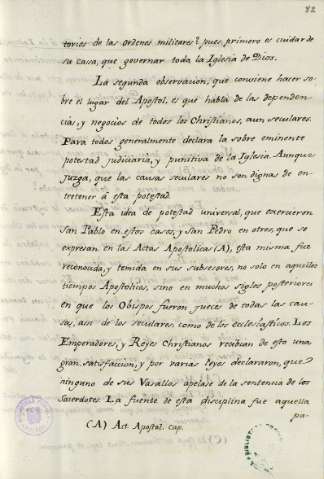 82
torios de las ordenes militares? pues primero es cuidar de
su casa, que governar toda la Iglesia de Dios.
La segunda observacion, que conviene hacer so-
bre el lugar del Apostol, es que habla de las dependen-
cias, y negocios de todos los Christianos, aun seculares.
Para todos generalmente declara la sobre eminente
potestad judiciaria, y punitiva de la Iglesia. Aunque
juzga, que las causas seculares no son dignas de en-
tretener à esta potestad.
Esta idea de potestad universal, que exercieron
San Pablo en estos casos, y San Pedro en otros, que se
expresan en las Actas Apostolicas (A), esta misma fue
reconocida, y temida en sus subcesores, no solo en aquellos
tiempos Apostolicos, sino en muchos siglos posteriores
en que los Obispos fueron jueces de todas las cau-
sas, asi de los seculares como de los eclesiasticos. Los
Emperadores, y Reyes Christianos recibian de esto una
gran satisfaccion, y por varias leyes declararon, que
ninguno de sus Vasallos apelase de la sentencia de los
Sacerdotes. La fuente de esta disciplina fue aquella
pa-
(A) Act. Apostol. Cap.